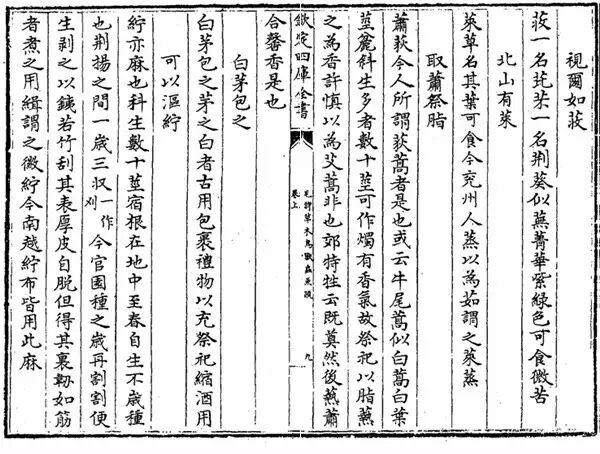 視爾如荍
荍一名芘芣一名荆葵似蕪菁華紫綠色可食微苦
北山有萊
萊草名其葉可食今兖州人蒸以為茹謂之萊蒸
取蕭祭脂
蕭荻今人所謂荻蒿者是也或云牛尾蒿似白蒿白葉
莖麄科生多者數十莖可作燭有香氣故祭祀以脂爇
之為香許慎以為艾蒿非也郊特牲云既奠然後爇蕭
欽定四庫全書
毛詩草木鳥獸蟲魚疏
卷上
九
合馨香是也
白茅包之
白茅包之茅之白者古用包裹禮物以充祭祀縮酒用
可以漚紵
紵亦麻也科生數十莖宿根在地中至春自生不歳種
也荆揚之間一歳三收一作刈今官園種之歳再割割便
生剥之以鐵若竹刮其表厚皮自脱但得其裏韌如筋
者煮之用緝謂之徽紵今南越紵布皆用此麻